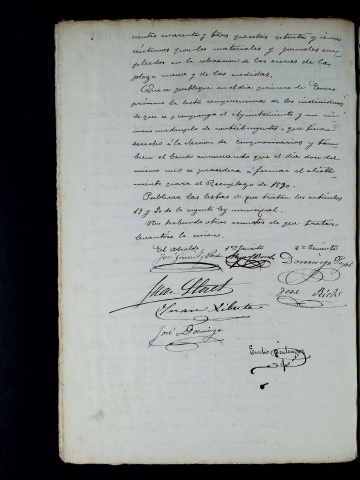 cientos cuarenta y tres pesetas setenta y cinco
céntimos por los materiales y jornales em-
pleados en la colocación de las aceras de la
plaza nueva y de las medidas.
Que se publique en el día primero de Enero
próximo la lista comprensiva de los individuos
de que se componga el Ayuntamiento y un nú-
mero cuádruplo de contribuyentes, que tienen
derecho á la elección de compromisarios y tam-
bien el bando anunciando que el día doce del
mismo mes se procederá á formar el alista-
miento para el Reemplazo de 1890.
Publicar las listas de que tratan los artículos
19 y 20 de la vigente ley municipal.
No habiendo otros asuntos de que tratar
levantóse la sesion.
El Alcalde 1er Teniente 2o Teniente
José Domingo
Juan Lloret José
Juan Xiberta
José Domingo
Emilio